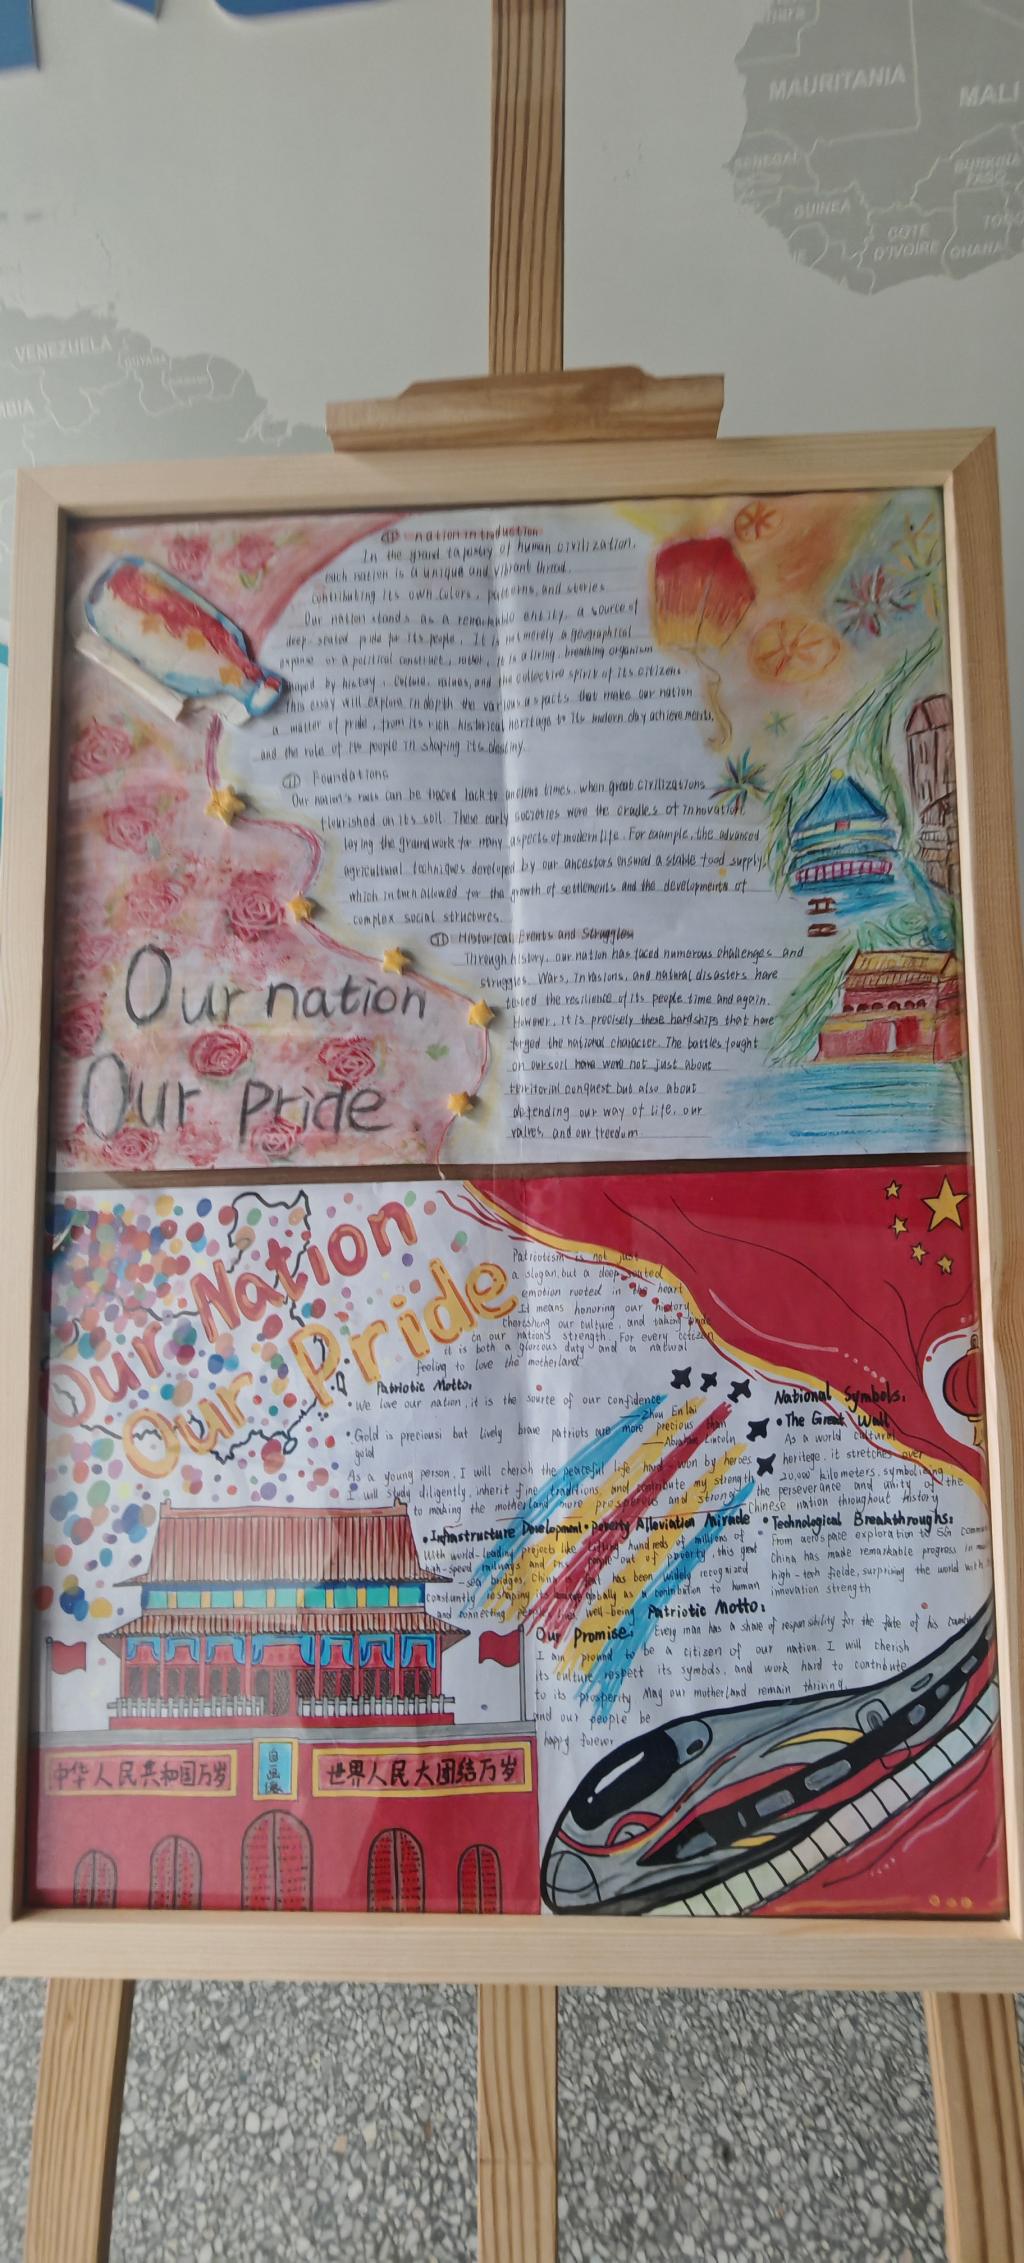 MAURITANIA
MALI
SENEGAL
BURKINA
FASO
GUINEA
COTE
D'IVOIRE
GHANA
VENEZUELA
GUYANA
nation introduction
In the grand tapestry of human civilization,
each nation is a unique and vibrant thread,
contributing its own colors, patterns, and stories
Our nation stands as a remarkable entity, a source of
deep-seated pride for its people. It is not merely a geographical
expanse or a political construct, rather, it is a living, breathing organism
shaped by history, culture, values, and the collective spirit of its citizens.
This essay will explore in depth the various aspects that make our nation
a matter of pride, from its rich historical heritage to its modern day achievements,
and the role of its people in shaping its destiny.
Foundations
Our nation's roots can be traced back to ancient times, when great civilizations
flourished on its soil. These early societies were the cradles of innovation,
laying the groundwork for many aspects of modern life. For example, the advanced
agricultural techniques developed by our ancestors ensured a stable food supply,
which in turn allowed for the growth of settlements and the developments of
complex social structures.
Historical Events and Struggles
Through history, our nation has faced numerous challenges and
struggles. Wars, invasions, and natural disasters have
tested the resilience of its people time and again.
However, it is precisely these hardships that have
forged the national character. The battles fought
on our soil have were not just about
territorial conquest but also about
defending our way of life, our
values, and our freedom
Our nation
Our pride
Our Nation
Our Pride
Patriotism is not just
a slogan, but a deep-seated
emotion rooted in the heart
It means honoring our history
cherishing our culture, and taking pride
in our nation's strength. For every citizen
it is both a glorious duty and a natural
feeling to love the motherland
Patriotic Motto:
• We love our nation, it is the source of our confidence
—Zhou En lai
• Gold is preciousi but lively brave patriots are more precious than
gold
—Abraham Lincoln
As a young person, I will cherish the peaceful life hard-won by heroes
I will study diligently, inherit fine traditions, and contribute my strength
to making the motherland more prosperous and strong
National Symbols:
• The Great Wall
As a world cultural
heritage, it stretches over
20,000 kilometers, symbolizing
the perseverance and unity of the
Chinese nation throughout history
• Infrastructure Development
With world-leading projects like
high-speed railways and
-sea bridges, China
constantly reshaping its
and connecting people
• Poverty Alleviation Miracle
Lifting hundreds of millions of
people out of poverty, this great
feat has been widely recognized
globally as a contribution to human
well-being
• Technological Breakthroughs:
From aerospace exploration to 5G
China has made remarkable progress in
high-tech fields, surprising the world with
innovation strength
Patriotic Motto:
Every man has a share of responsibility for the fate of his
Our Promise:
I am pround to be a citizen of our nation. I will cherish
its culture respect its symbols, and work hard to contribute
to its prosperity May our motherland remain thriving,
and our people be
happy forever
中华人民共和国万岁
自画像
世界人民大团结万岁